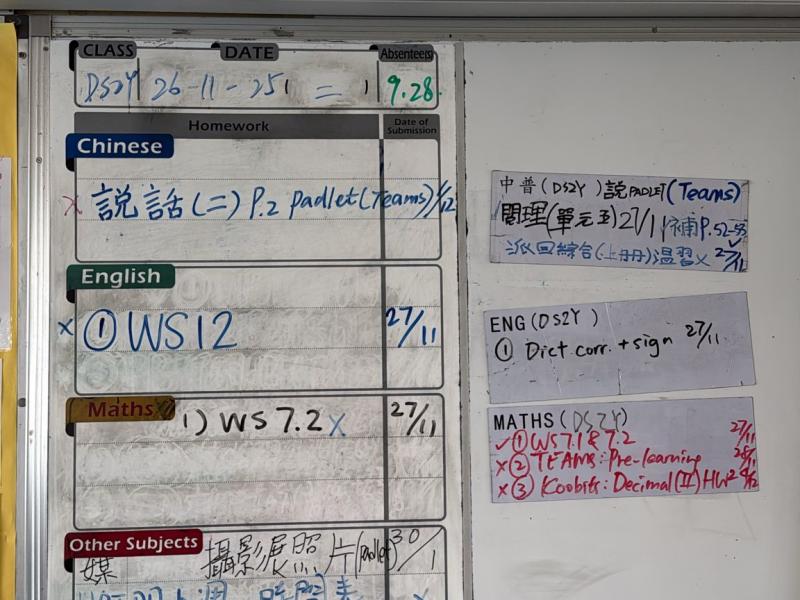 CLASS DATE Absentee(s)
DS2Y 26-11-25 = 9.28
Homework Date of Submission
Chinese
x 說話(二) P.2 padlet(Teams) 1/12
English
x ① WS12 27/11
Maths
1) WS 7.2 x 27/11
Other Subjects
媒 攝影展照片(padlet) 30/1
中普(DS2Y) 說 PADLET (Teams)
閱理(單元五) 27/11 補 P.52-53
派回綜合(上冊)溫習 x 27/11
ENG (DS2Y)
① Dict corr. + sign 27/11
MATHS (DS2Y)
✓ ① WS7.1 & 7.2 27/11
x ② TEAMS: Pre-learning 28/11
x ③ Koobits: Decimal (II) HW2